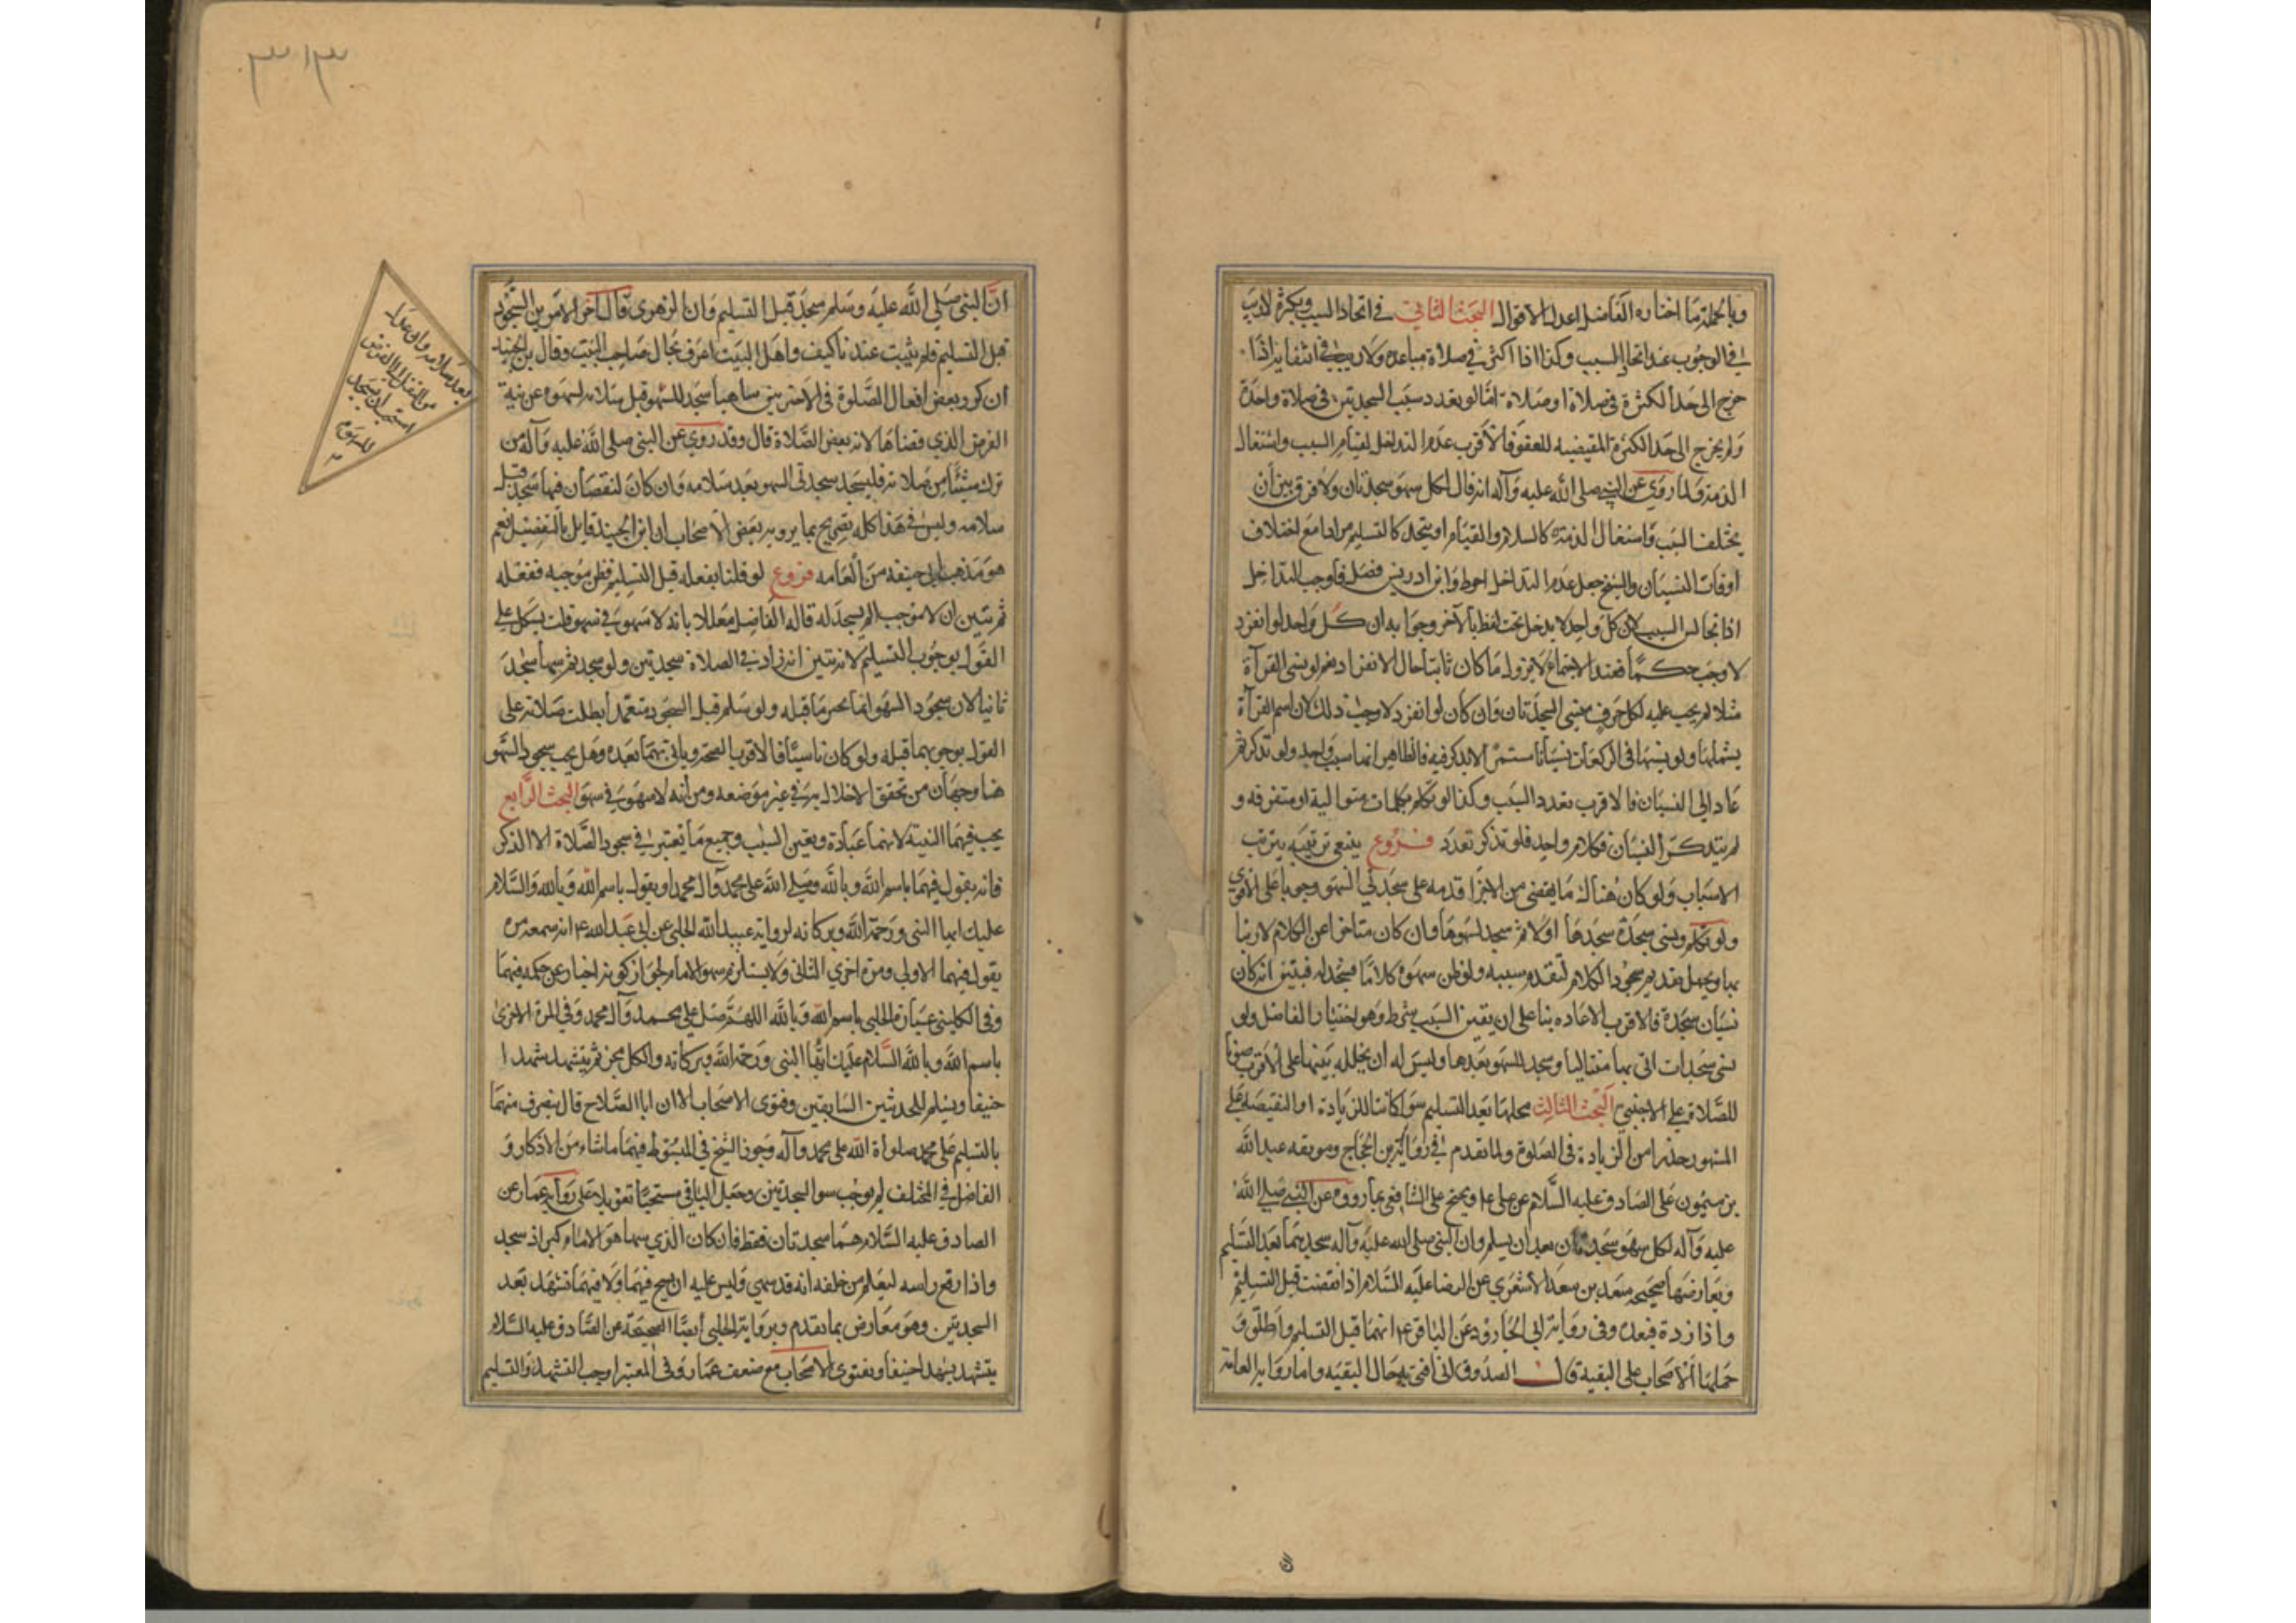 وبالجملة ما اختاره الفاضل اعدل الاقوال البحث الثاني في اتحاد السبب وبكثرة لا ريب
في الوجوب عند اتحاد السبب وكذا اذا اكثر في صلاة مباعدة ولا ريب في انتفايه اذا
خرج الى حد الكثرة في صلاة او صلاة امّا لو تعدد سبب السجدتين في صلاة واحدة
ولم يخرج الى حد الكثرة المقيضيه للعفو فالاقرب عدم التداخل لقيام السبب واشتغال
الذمة ولما روي عن النبي صلى الله عليه وآله انه قال لكل سهو سجدتان ولا فرق بين أن
يختلف السبب واشتغال الذمة كالسلام والقيام او يتحد كالتسليم مرارا مع اختلاف
اوقات النسيان والشيخ جعل عدم التداخل احوط وابن ادريس فصل فاوجب التداخل
اذا تجانس السبب لان كل واحد لا يدخل تحت لفظ بالآخر وجوابه ان كل واحد لو انفرد
لاوجب حكما فعند الاجتماع لا يزول ما كان ثابتا حال الانفراد نعم لو نسى القرآة
مثلا لم يجب عليه لكل حرف منسي السجدتان وان كان لو انفرد لاوجب ذلك لان اسم القرآة
يشملها ولو نسيها في الركعات نسيانا مستمرا لا يذكر فيه فالظاهر انها سبب واحد ولو تذكر ثم
عاد الى النسيان فالاقرب تعدد السبب وكذا لو تكلم بكلمات متوالية او متفرقة و
لم يتذكر النسيان فكلام واحد فلو تذكر تعدد فروع ينبغي ترتيبه بترتب
الاسباب ولو كان هناك ما يقضي من الاجزا قدمه على سجدتي السهو وجوبا على الاقوى
ولو تكلم ونسي سجدة سجدها اولا ثم سجد لسهوها وان كان متاخرا عن الكلام لارتباطها
بها ويحتمل تقديم سجود الكلام لتقدم سببه ولو ظن سهوه كلاما فسجد له فتبين انه كان
نسيان سجدة فالاقرب الاعاده بنا على ان تعين السبب شرط وهو اختيار الفاضل ولو
نسي سجدات اتى بها متتاليا وسجد للسهو بعدها وليس له ان يخلله بينها على الاقرب صونا
للصلاة على الاجنبي البحث الثالث محلهما بعد التسليم سوا كانتا للزيادة او النقيصه على
المشهور حذرا من الزيادة في الصلوة ولما تقدم في رواية بن الحجاج وموثقه عبد الله
بن ميمون على الصادق عليه السلام عن علي ع ويحتج على الشافعي بما رووه عن النبي صلى الله
عليه وآله لكل سهو سجدتان بعد ان يسلم وان النبي صلى الله عليه وآله سجدهما بعد التسليم
وتعارضها صحيحه سعد بن سعد الاشعري عن الرضا عليه السلام اذا نقصت قبل التسليم
واذا زدة فبعده وفي رواية ابي الجارود عن الباقر ع انهما قبل التسليم واطلق و
حملها الاصحاب على التقية قال الصدوق اني افتى به حال التقيه واما رواية العامة
ان النبي صلي الله عليه وسلم سجد قبل التسليم وان الزهري قال آخر الامرين السجود
قبل التسليم فلم يثبت عندنا كيف واهل البيت اعرف بحال صاحب البيت وقال بن الجنيد
ان كرر بعض افعال الصلوة في الاخرتين ساهيا سجد للسهو قبل سلامه لسهوه عن نية
الفرض الذي قضاها لانه بعض الصلاة قال وقد روي عن النبي صلى الله عليه وآله من
ترك شيئا من صلاته فليسجد سجدتي السهو بعد سلامه وان كان لنقصان فيها سجد قبل
سلامه وليس في هذا كله تصريح بما يرويه بعض الاصحاب ان ابن الجنيد قايل بالتفصيل نعم
هو مذهب ابي حنيفه من العامه فروع لو قلنا بفعله قبل التسليم فظن موجبه ففعله
ثم تبين ان لا موجب لم يسجد له قاله الفاضل معللا بانه لا سهو في سهو قلت يشكل على
القول بوجوب التسليم لانه تبين انه زاد في الصلاة سجدتين ولو سجد ثم سها سجد
ثانيا لان سجود السهو انما يجبر ما قبله ولو سلم قبل السجود متعمدا بطلت صلاته على
القول بوجوبهما قبله ولو كان ناسيا فالاقرب الصحة وياتي بهما بعده وهل يجب سجود السهو
هنا وجهان من تحقق الاخلال بهما في غير موضعه ومن انه لا سهو في سهو البحث الرابع
يجب فيهما النية لانهما عبادة وتعين السبب وجميع ما يعتبر في سجود الصلاة الا الذكر
فانه يقول فيهما باسم الله وبالله وصلى الله على محمد وآل محمد او يقول باسم الله وبالله والسلام
عليك ايها النبي ورحمة الله وبركاته لرواية عبيد الله الحلبي عن ابي عبد الله ع انه سمعه مرة
يقول فيهما الاولى ومرة اخرى الثاني ولا يستلزم سهو الامام لجواز كونه اخبارا عن حكمه فيهما
وفي الكليني عبارة الحلبي باسم الله وبالله اللهم صل على محمد وآل محمد وفي المرة الاخرى
باسم الله وبالله السلام عليك ايها النبي ورحمة الله وبركاته والكل مجز ثم يتشهد تشهدا
خفيفا ويسلم للحديثين السابقين وفتوى الاصحاب الا ان ابا الصلاح قال ينصرف منهما
بالتسليم على محمد صلوة الله على محمد وآله وجوز الشيخ في المبسوط فيهما ما شاء من الاذكار و
الفاضل في المختلف لم يوجب سوا السجدتين وجعل الباقي مستحبا تعويلا على رواية عمار عن
الصادق عليه السلام هما سجدتان فقط فان كان الذي سها هو الامام كبر اذ سجد
واذا رفع راسه ليعلم من خلفه انه قد سهى وليس عليه ان يسبح فيهما ولا فيهما تشهد بعد
السجدتين وهو معارض بما تقدم وبرواية الحلبي ايضا الصحيحة عن الصادق عليه السلام
يتشهد تشهدا خفيفا وبفتوى الاصحاب مع ضعف عمار وفي المعتبر اوجب التشهد والتسليم
بعد سلامه وان عدل
من النفل الى الفرض
استحب ان يسجد
للسهو م
٣١٣